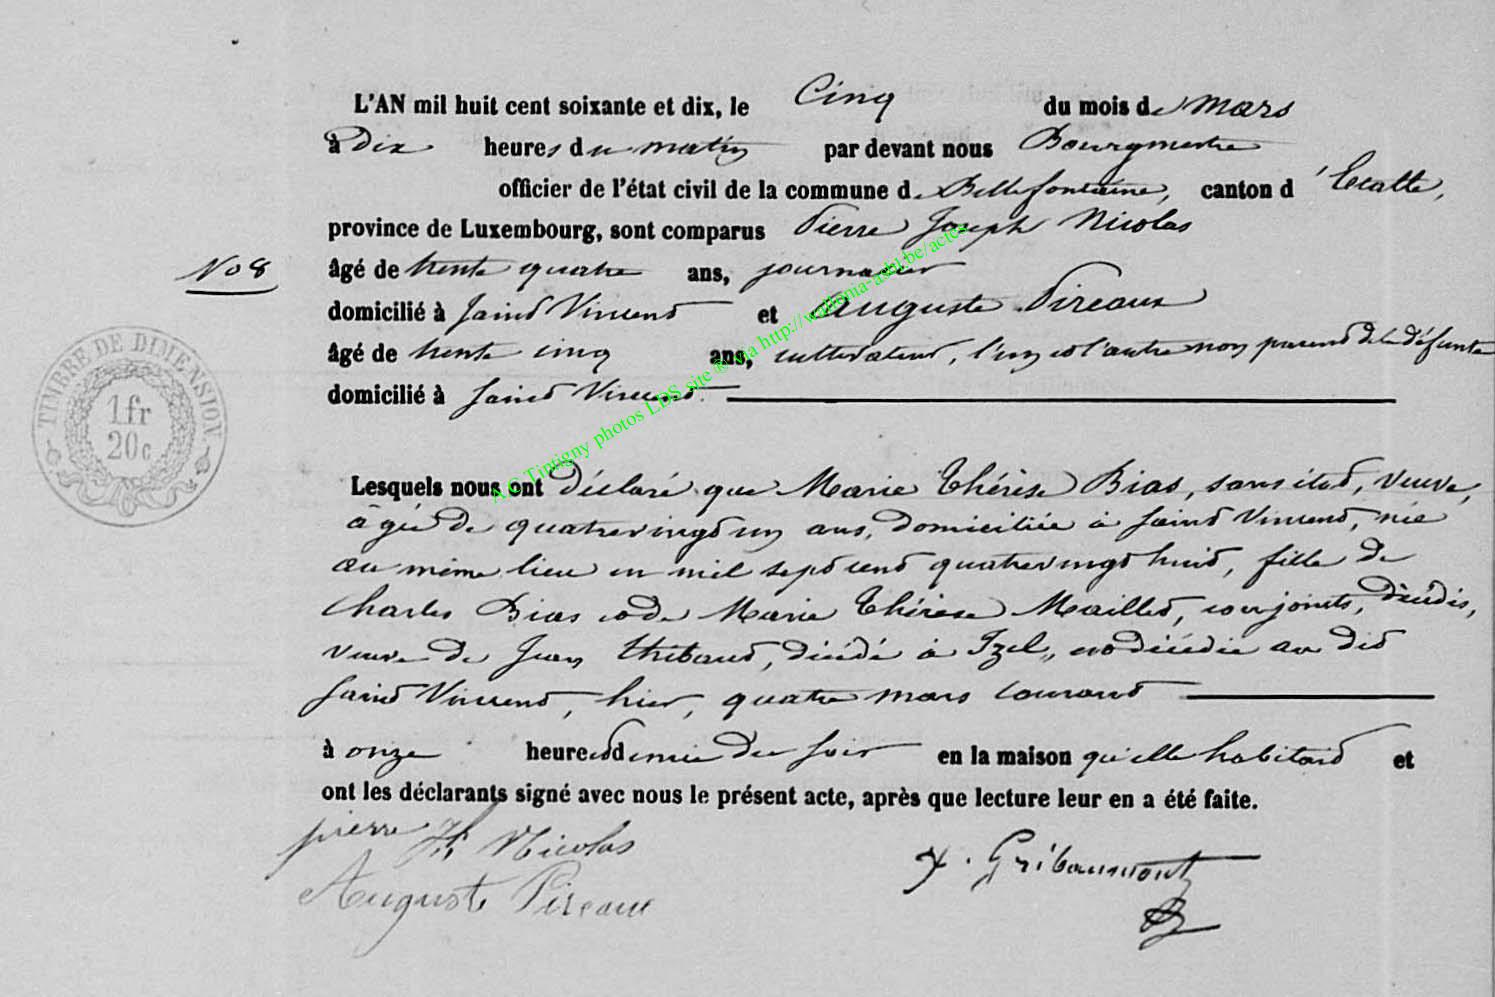 L'AN mil huit cent soixante et dix, le Cinq du mois de Mars
à Dix heures du matin par devant nous Bourgmestre
officier de l'état civil de la commune de Bellefontaine, canton d'Etalle,
province de Luxembourg, sont comparus Pierre Joseph Nicolas
No 8
âgé de trente quatre ans, journalier
domicilié à Saint Vincent et Auguste Pireaux
âgé de trente cinq ans, cultivateur, l'un et l'autre non parent de la défunte
domicilié à Saint Vincent.
TIMBRE DE DIMENSION
1 fr
20 c
Lesquels nous ont déclaré que Marie Thérèse Bias, sans état, veuve,
âgée de quatrevingt un ans, domiciliée à Saint Vincent, née
au même lieu en mil sept cent quatrevingt huit, fille de
Charles Bias et de Marie Thérèse Maillet, conjoints, décédés,
veuve de Jean Thibaud, décédé à Izel, et décédée au dit
Saint Vincent, hier, quatre mars courant
à onze heure et demie du soir en la maison qu'elle habitait et
ont les déclarants signé avec nous le présent acte, après que lecture leur en a été faite.
pierre Jh Nicolas
Auguste Pireaux
Gribaumont
A.C. Tintigny photos LDS site ® via http://wallonia-asbl.be/actes